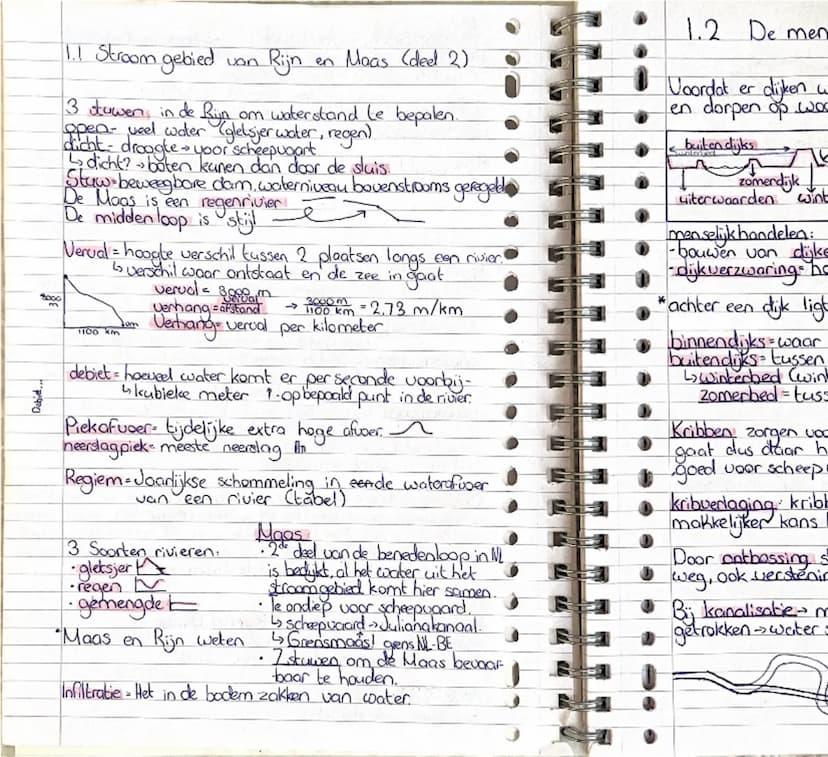 1.1 Stroomgebied van Rijn en Maas (deel 2)
3 stuwen in de Rijn om waterstand te bepalen.
open = veel water (gletsjerwater, regen)
dicht = droogte → voor scheepvaart
↳ dicht? → boten kunen dan door de sluis
Stuw = beweegbare dam, waterniveau bovenstrooms geregeld
De Maas is een regenrivier
De middenloop is stijl
Verval = hoogte verschil tussen 2 plaatsen langs een rivier.
↳ verschil waar ontstaat en de zee in gaat
verval = 3000 m
verhang = verval / afstand → 3000 m / 1100 km = 2.73 m/km
Verhang = verval per kilometer
3000 m
0m
1100 km
debiet = hoeveel water komt er per seconde voorbij-
↳ kubieke meter ↑ op bepaald punt in de rivier.
Debiet...
Piekafvoer = tijdelijke extra hoge afvoer.
neerslagpiek = meeste neerslag
Regiem = Jaarlijkse schommeling in de waterafvoer
van een rivier (tabel)
3 Soorten rivieren:
• gletsjer
• regen
• gemengde
*Maas en Rijn weten
Maas
• 2de deel van de benedenloop in NL
is bedijkt, al het water uit het
stroomgebied komt hier samen.
• Te ondiep voor scheepvaard.
↳ scheepvaard → Julianakanaal.
↳ Grensmaas! grens NL-BE
• 7 stuwen om de Maas bevaar-
baar te houden.
Infiltratie = Het in de bodem zakken van water.
1.2 De men
Voordat er dijken w
en dorpen op woo
buitendijks
zomerdijk
uiterwaarden wint
menselijk handelen:
- bouwen van dijke
- dijkverzwaring = ho
*achter een dijk ligt
binnendijks = waar
buitendijks = tussen
↳ winterbed (wint
zomerbed = tuss
Kribben zorgen voo
gaat dus daar h
goed voor scheep
kribverlaging: kribb
makkelijker kans
Door ontbossing s
weg, ook verstenin
Bij kanalisatie → m
getrokken → water